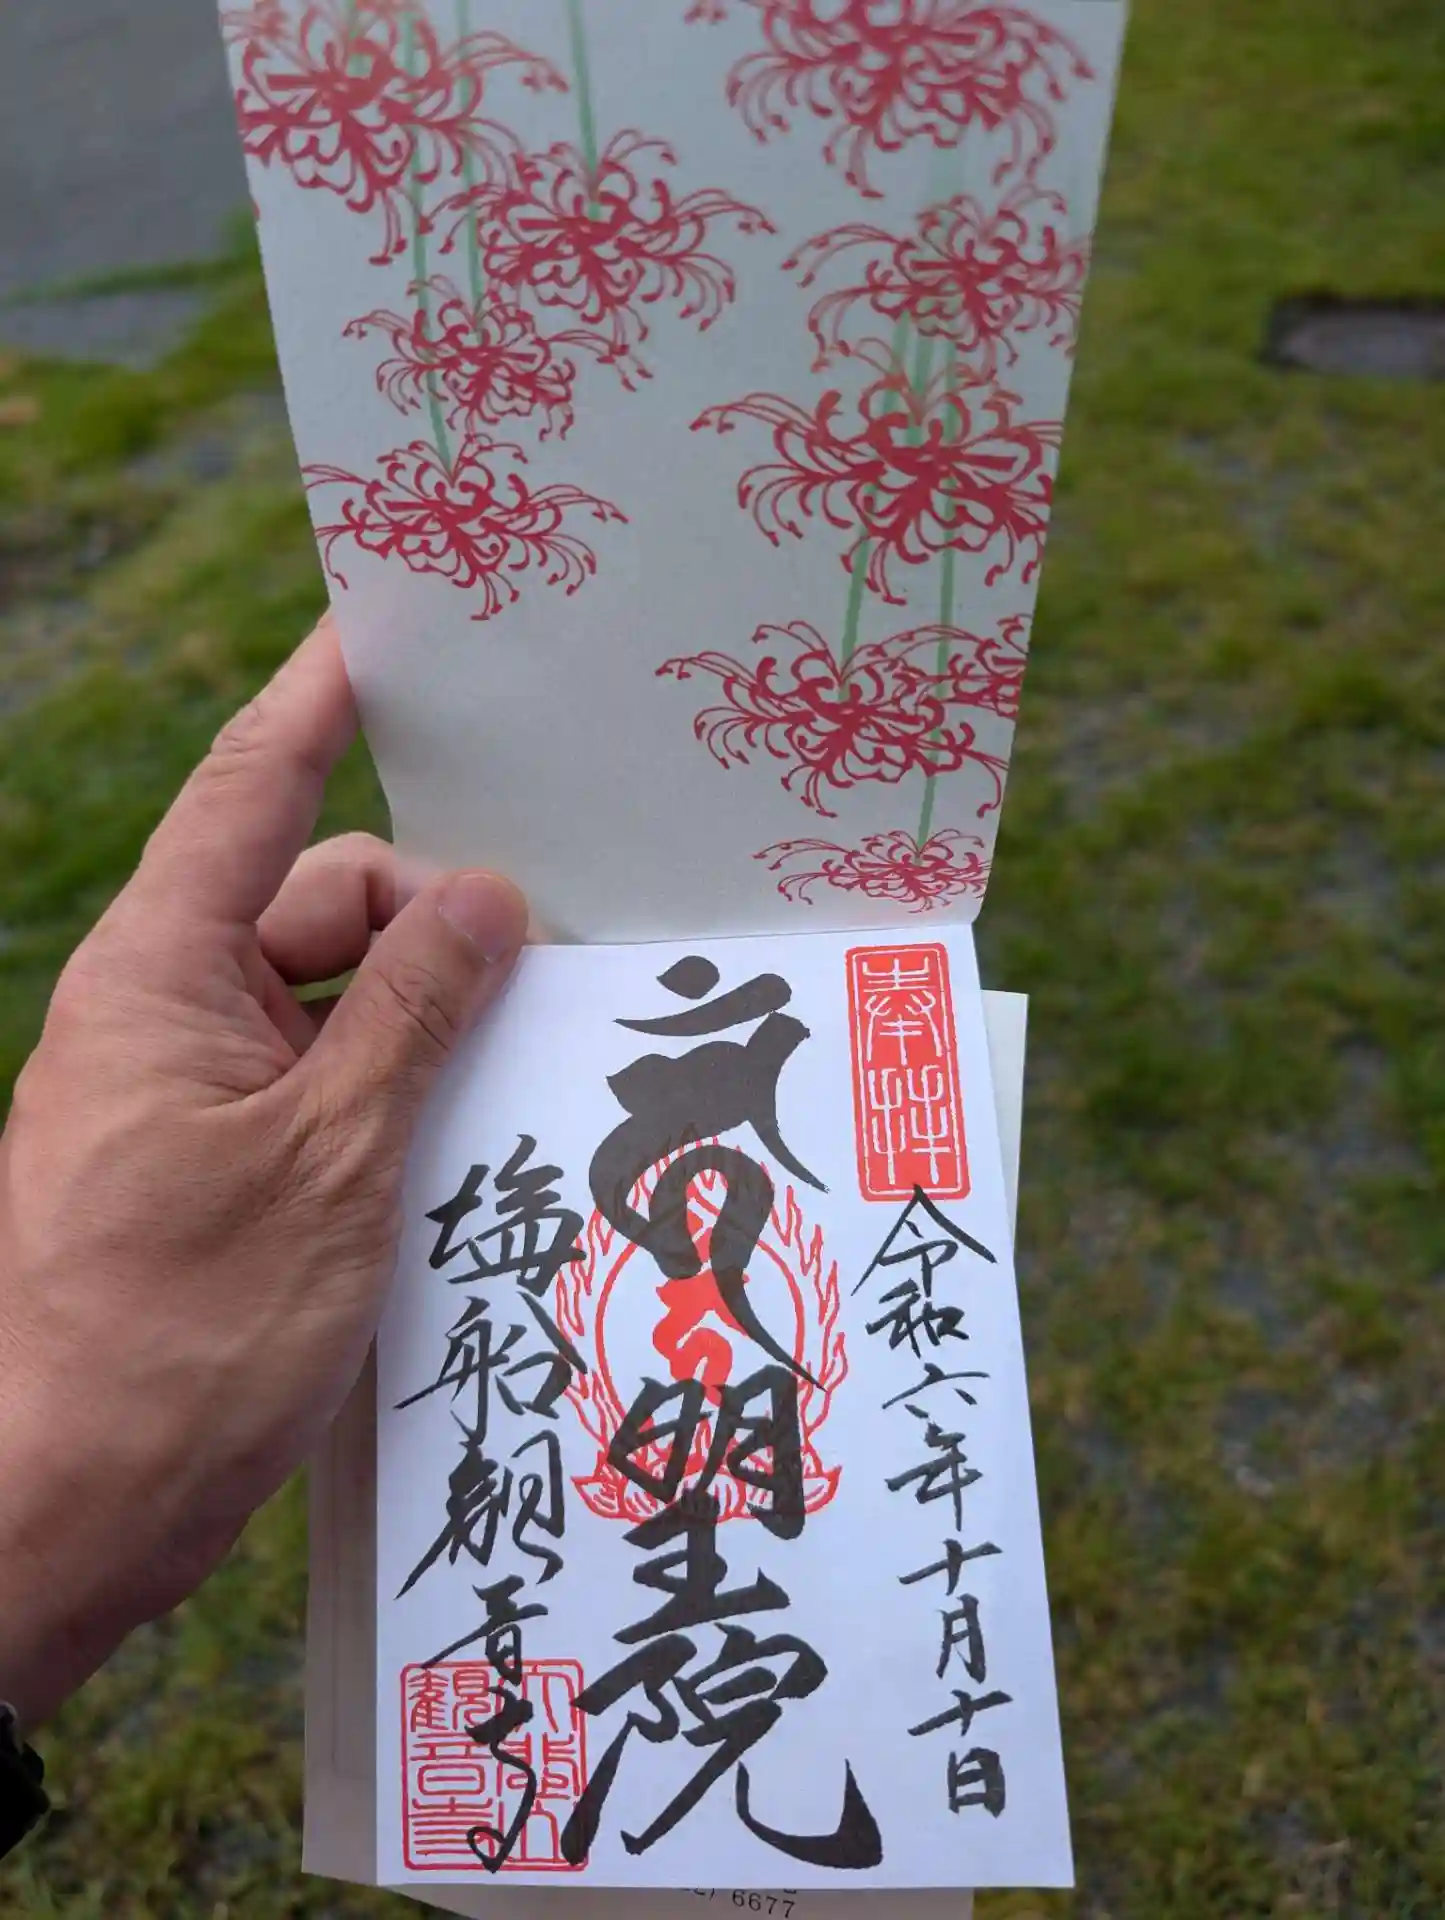 奉拝
令和六年十月十日
明王院
塩船観音寺
大悲山
観音寺
6677